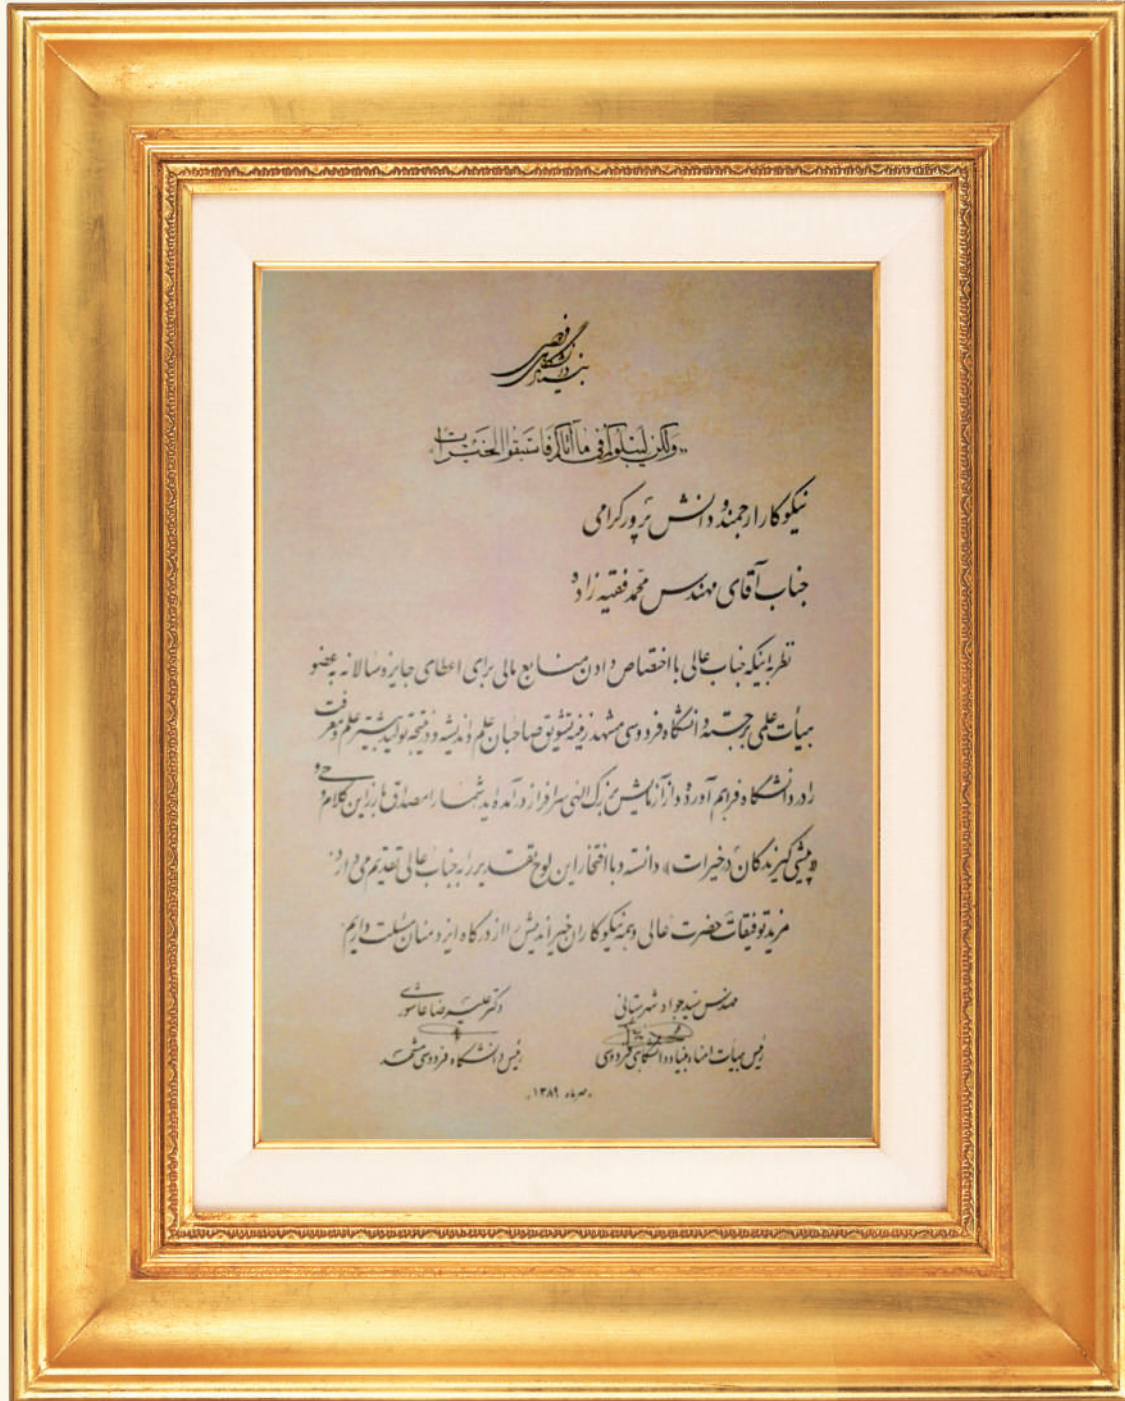 بنیاد دانشگاهی فردوسی
«ولکن لیبلوکم فی ما آتاکم فاستبقوا الخیرات»
نیکوکار ارجمند و دانش پرور گرامی
جناب آقای مهندس محمد فقیه زاده
نظر به اینکه جناب عالی با اختصاص دادن منابع مالی برای اعطای جایزه سالانه به عضو
هیأت علمی برجسته دانشگاه فردوسی مشهد زمینه تشویق صاحبان علم و اندیشه و در نتیجه تولید بیشتر علم و معرفت
را در دانشگاه فراهم آورده و از آزمایش بزرگ الهی سرافراز درآمده اید شما را مصداق بارز این کلام وحی و
«پیشی گیرندگان در خیرات» دانسته و با افتخار این لوح تقدیر را به جناب عالی تقدیم می دارد.
مزید توفیقات حضرت عالی و همه نیکوکاران خیراندیش را از درگاه ایزد منان مسئلت داریم.
مهندس سید جواد شهرستانی
دکتر علیرضا عاشوری
رئیس هیأت امناء بنیاد دانشگاهی فردوسی
رئیس دانشگاه فردوسی مشهد
«مهرماه ۱۳۸۹»